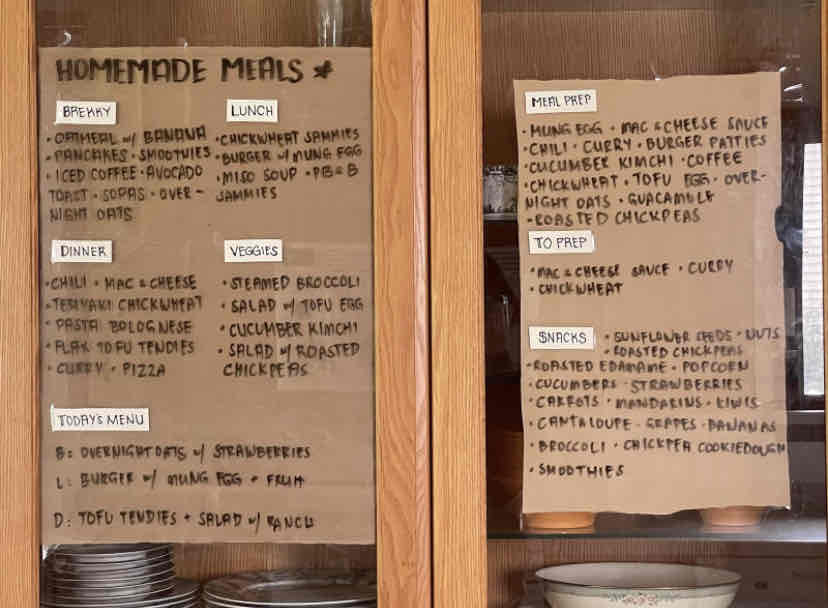 HOMEMADE MEALS *
BREKKY
• OATMEAL w/ BANANA
• PANCAKES • SMOOTHIES
• ICED COFFEE • AVOCADO
TOAST • SOPAS • OVER-
NIGHT OATS
LUNCH
• CHICKWHEAT SAMMIES
• BURGER w/ MUNG EGG
• MISO SOUP • PB & B
SAMMIES
DINNER
• CHILI • MAC & CHEESE
• TERIYAKI CHICKWHEAT
• PASTA BOLOGNESE
• FLAX TOFU TENDIES
• CURRY • PIZZA
VEGGIES
• STEAMED BROCCOLI
• SALAD w/ TOFU EGG
• CUCUMBER KIMCHI
• SALAD w/ ROASTED
CHICKPEAS
TODAY'S MENU
B: OVERNIGHT OATS w/ STRAWBERRIES
L: BURGER w/ MUNG EGG + FRUIT
D: TOFU TENDIES + SALAD w/ RANCH
MEAL PREP
• MUNG EGG • MAC & CHEESE SAUCE
• CHILI • CURRY • BURGER PATTIES
• CUCUMBER KIMCHI • COFFEE
• CHICKWHEAT • TOFU EGG • OVER-
NIGHT OATS • GUACAMOLE
• ROASTED CHICKPEAS
TO PREP
• MAC & CHEESE SAUCE • CURRY
• CHICKWHEAT
SNACKS
• SUNFLOWER SEEDS • NUTS
• ROASTED CHICKPEAS
• ROASTED EDAMAME • POPCORN
• CUCUMBERS • STRAWBERRIES
• CARROTS • MANDARINS • KIWIS
• CANTALOUPE • GRAPES • BANANAS
• BROCCOLI • CHICKPEA COOKIEDOUGH
• SMOOTHIES